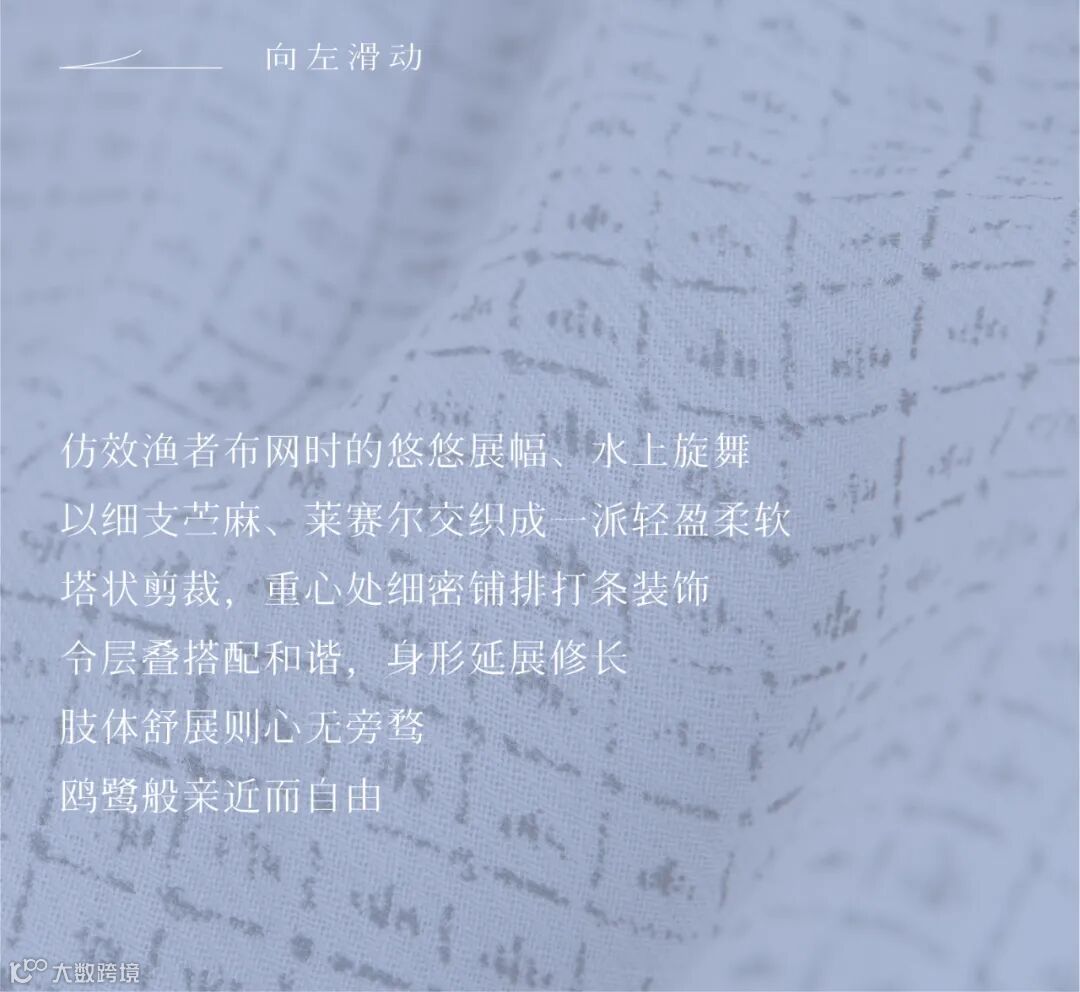 向左滑动
仿效渔者布网时的悠悠展幅、水上旋舞
以细支苎麻、莱赛尔交织成一派轻盈柔软
塔状剪裁，重心处细密铺排打条装饰
令层叠搭配和谐，身形延展修长
肢体舒展则心无旁骛
鸥鹭般亲近而自由
大数跨境